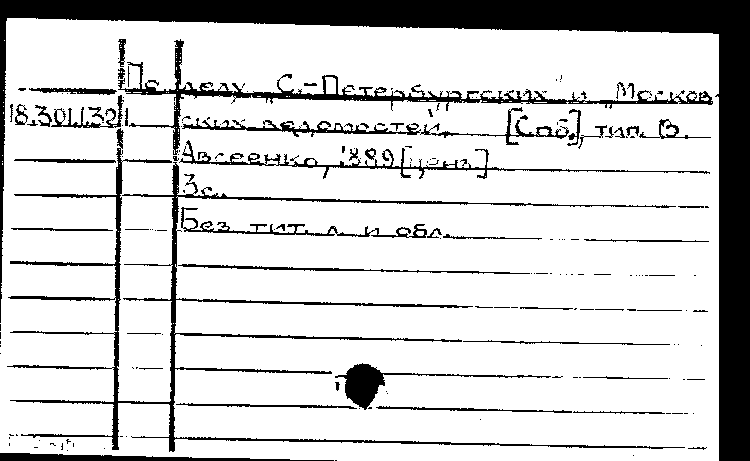 По делу „С.-Петербургских" и „Москов-
18.301.1.32 1. ских ведомостей". [Спб.], тип. В.
Авсеенко, 1889 [ценз.]
3 с.
Без тит. л. и обл.